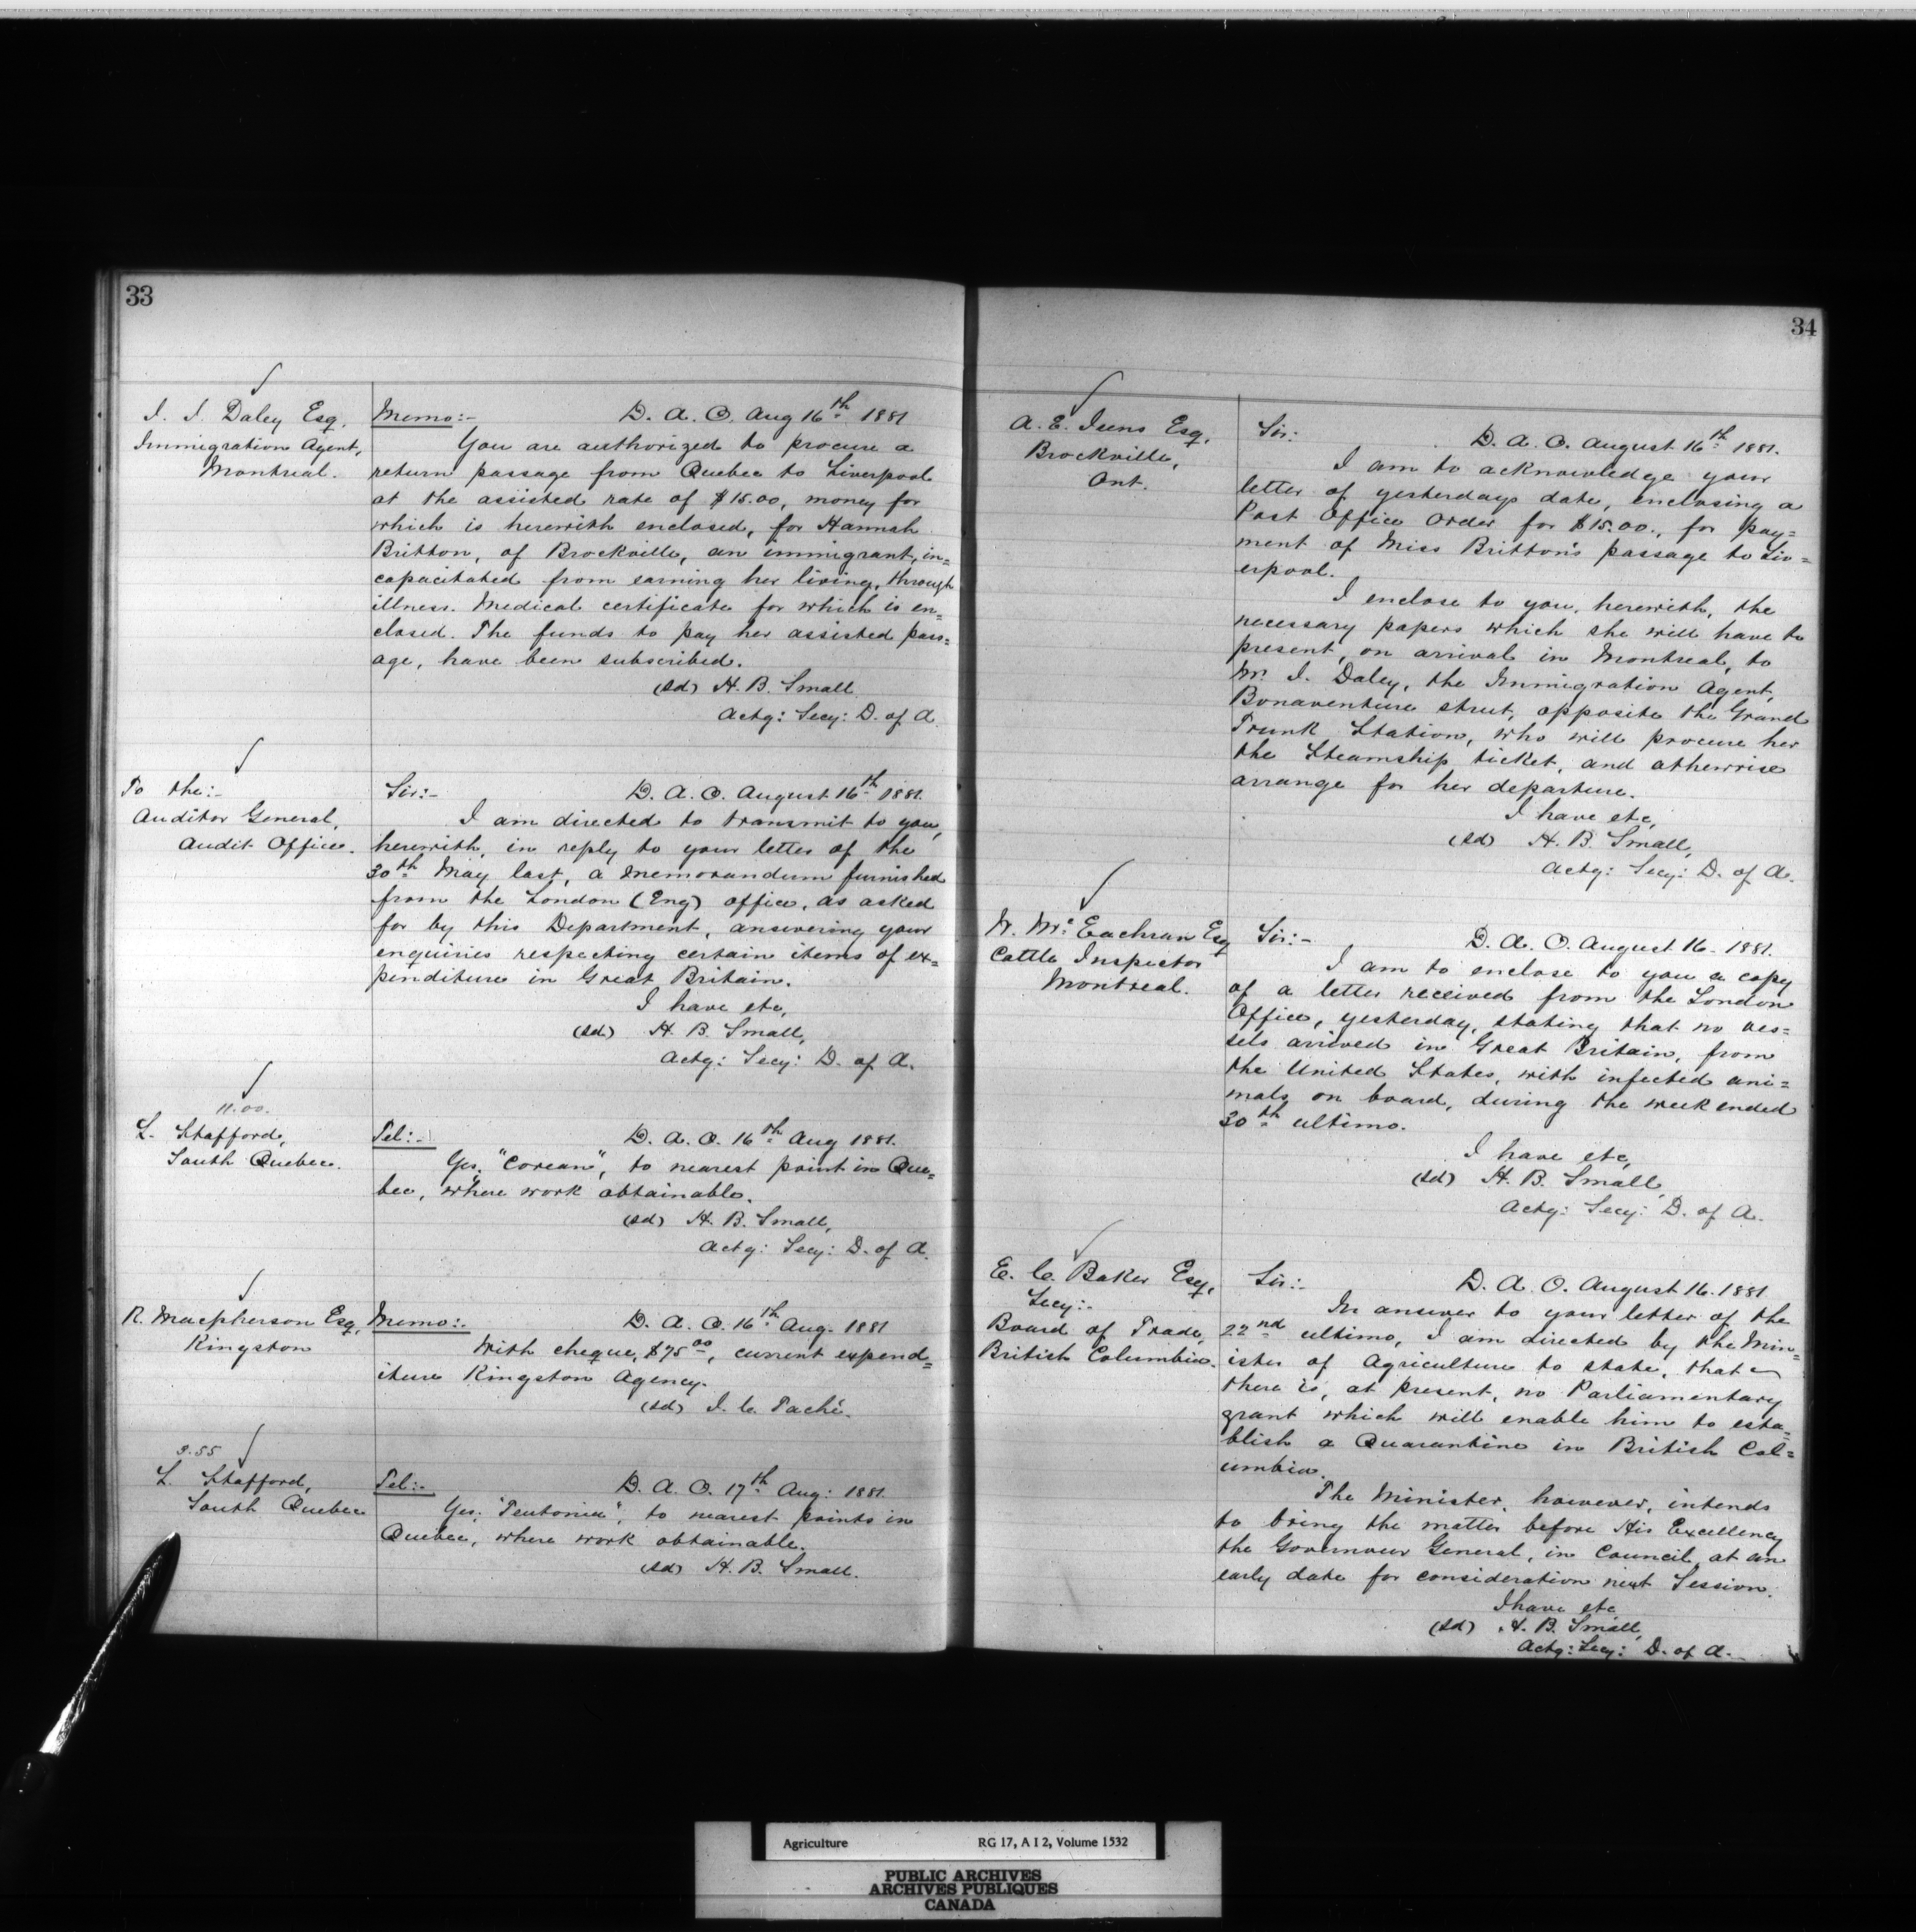 33
J. J. Daley Esq.
Immigration Agent,
Montreal.
Memo:- D. A. O. Aug 16th 1881
You are authorized to procure a
return passage from Quebec to Liverpool
at the assisted rate of $15.00, money for
which is herewith enclosed, for Hannah
Britton, of Brockville, an immigrant, in=
capacitated from earning her living, through
illness. Medical certificate for which is en=
closed. The funds to pay her assisted pass=
age, have been subscribed.
(sd) H. B. Small
Actg: Secy: D. of A.
To the:-
Auditor General,
Audit Office.
Sir:- D. A. O. August 16th 1881.
I am directed to transmit to you,
herewith, in reply to your letter of the
30th May last, a memorandum furnished
from the London (Eng) office, as asked
for by this Department, answering your
enquiries respecting certain items of ex=
penditure in Great Britain.
I have etc,
(sd) H. B. Small,
Actg: Secy: D. of A.
11.00.
L. Stafford,
South Quebec.
Tel:- D. A. O. 16th Aug 1881.
Yes, "Corean", to nearest point in Que=
bec, where work obtainable.
(sd) H. B. Small,
Actg: Secy: D. of A.
R. Macpherson Esq,
Kingston
Memo:- D. A. O. 16th Aug. 1881
With cheque, $75.00, current expend=
iture Kingston Agency.
(sd) J. C. Taché.
3.55
L. Stafford,
South Quebec
Tel:- D. A. O. 17th Aug: 1881.
Yes, "Teutonia", to nearest points in
Quebec, where work obtainable.
(sd) H. B. Small.
34
A. E. Esq,
Brockville,
Ont.
Sir: D. A. O. August 16th 1881.
I am to acknowledge your
letter of yesterdays date, enclosing a
Post Office Order for $15.00., for pay=
ment of Miss Britton's passage to Liv=
erpool.
I enclose to you, herewith, the
necessary papers which she will have to
present, on arrival in Montreal, to
Mr. J. Daley, the Immigration Agent,
Bonaventure street, opposite the Grand
Trunk Station, who will procure her
the Steamship ticket, and otherwise
arrange for her departure.
I have etc,
(sd) H. B. Small,
Actg: Secy: D. of A.
Mc Eachran Esq
Cattle Inspector
Montreal.
Sir:- D. A. O. August 16. 1881.
I am to enclose to you a copy
of a letter received from the London
Office, yesterday, stating that no ves=
sels arrived in Great Britain, from
the United States, with infected ani=
mals on board, during the week ended
30th ultimo.
I have etc,
(sd) H. B. Small,
Actg: Secy: D. of A.
E. C. Baker Esq,
Secy:-
Board of Trade,
British Columbia.
Sir:- D. A. O. August 16. 1881
In answer to your letter of the
22nd ultimo, I am directed by the Min=
ister of Agriculture to state, that
there is, at present, no Parliamentary
grant which will enable him to esta=
blish a Quarantine in British Col=
umbia.
The Minister, however, intends
to bring the matter before His Excellency
the Governour General, in Council, at an
early date for consideration next Session.
I have etc
(sd) H. B. Small,
Actg: Secy: D. of A.
Agriculture RG 17, A I 2, Volume 1532
PUBLIC ARCHIVES
ARCHIVES PUBLIQUES
CANADA